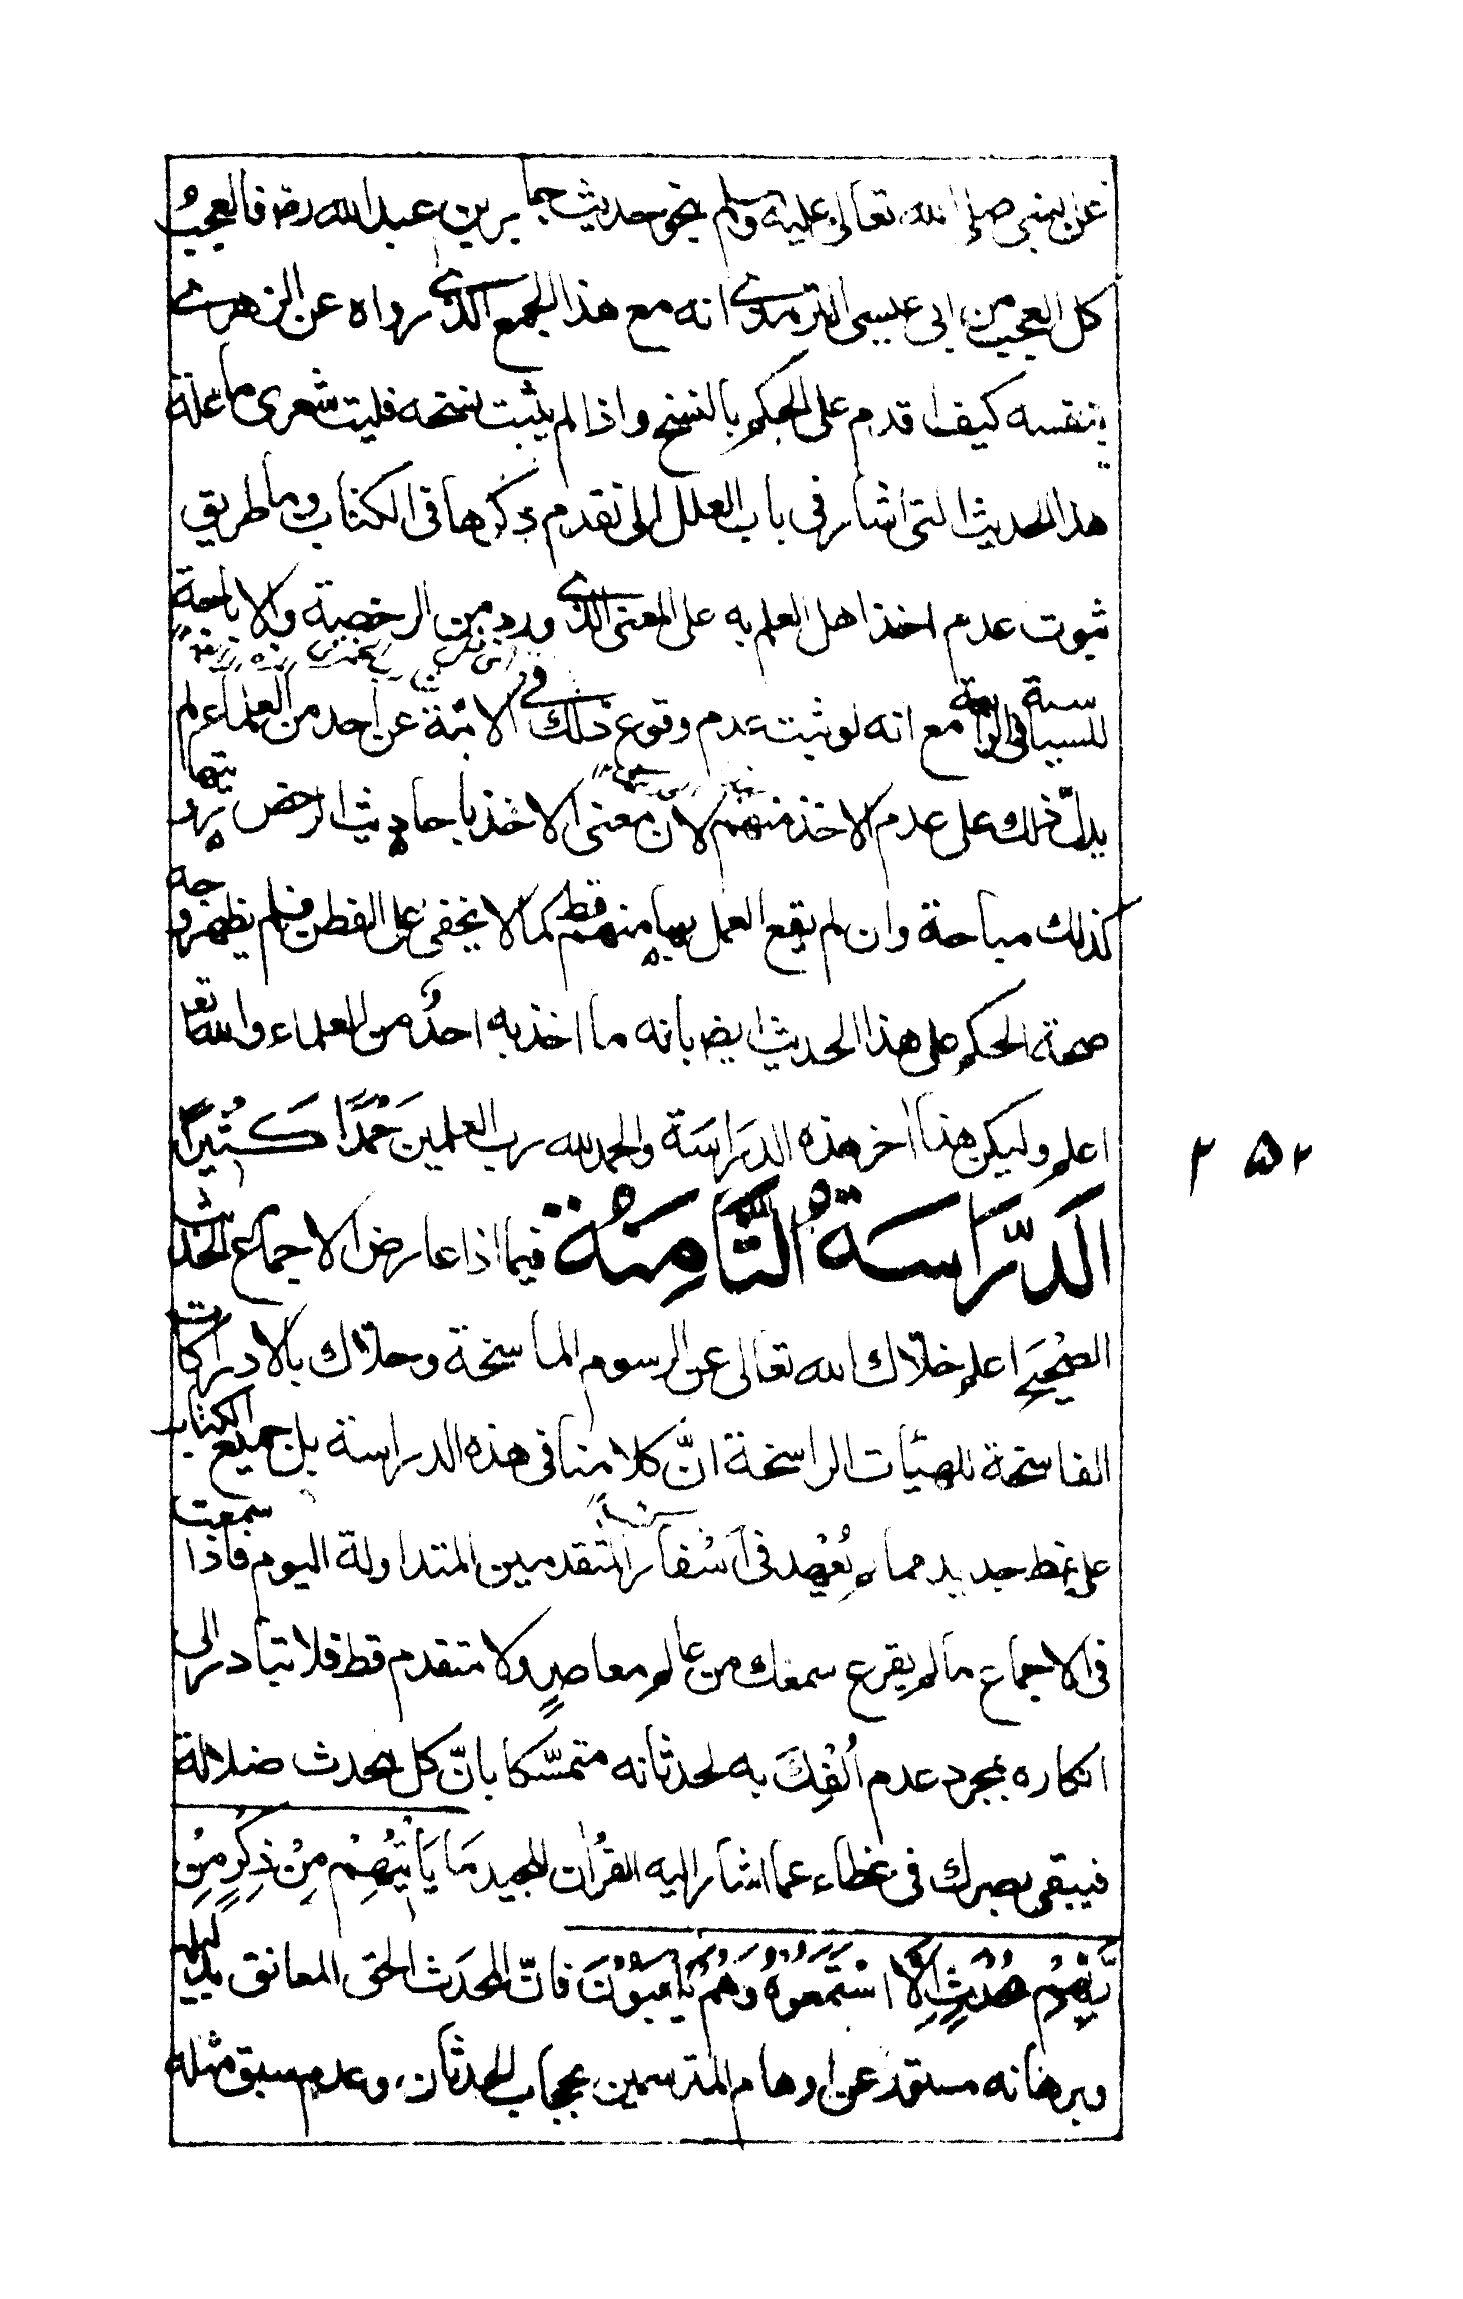 عن النبي صلى الله تعالى عليه وسلم نحو حديث جابر بن عبد الله رض فالعجب
كل العجب من ابى عيسى الترمذى انه مع هذا الجمع الذى رواه عن الزهرى
بنفسه كيف اقدم على الحكم بالنسخ واذا لم يثبت نسخه فليت شعرى ما علة
هذا الحديث التى اشار فى باب العلل الى تقدم ذكرها فى الكتاب وما طريق
ثبوت عدم اخذ اهل العلم به على المعنى الذى ورد من الرخصة والاباحة
للسياسة فى الرابعة مع انه لو ثبت عدم وقوع ذلك فى الامّة عن احد من العلماء لم
يدلّ ذلك على عدم الاخذ منهم لان معنى الاخذ باحاديث الرخص رؤيتها
كذلك مباحة وان لم يقع العمل بها منهم قط كما لا يخفى على الفطن فلم يظهر وجه
صحة الحكم على هذا الحديث ايضا بانه ما اخذ به احدٌ من العلماء والله تعا
اعلم وليكن هذا اخر هذه الدراسة والحمد لله رب العلمين حَمْدًا كَثِيرًا
الدِّرَاسَةُ الثَّامِنَةُ فيما اذا عارض الاجماع الحديث
الصَّحِيح اعلم خلّاك الله تعالى عن الرسوم الماسخة وحلّاك بالادراكات
الفاسخة للهيّات الراسخة انّ كلامنا فى هذه الدراسة بل جميع الكتاب
على نمط جديد مما لم يُعْهَد فى اسْفار المتقدمين المتداولة اليوم فاذا سمعت
فى الاجماع ما لم يقرع سمعك من عالم معاصرٍ ولا متقدم قط فلا تبادر الى
انكاره بمجرد عدم اُلْفِكَ به لحدثانه متمسّكا بانّ كل محدث ضلالة
فيبقى بصرك فى غطاء عما اشار اليه القرٰان المجيد مَا يَأْتِيهِمْ مِنْ ذِكْرٍ مِنْ
رَّبِّهِمْ مُحْدَثٍ اِلَّا اسْتَمَعُوْهُ وَهُمْ يَلْعَبُوْنَ فانّ المحدَث الحق المعانق بدليله
وبرهانه مستقد عن اوهام المترسمين بحجاب الحدثان، وعدم سبق مثله
٢٥٢